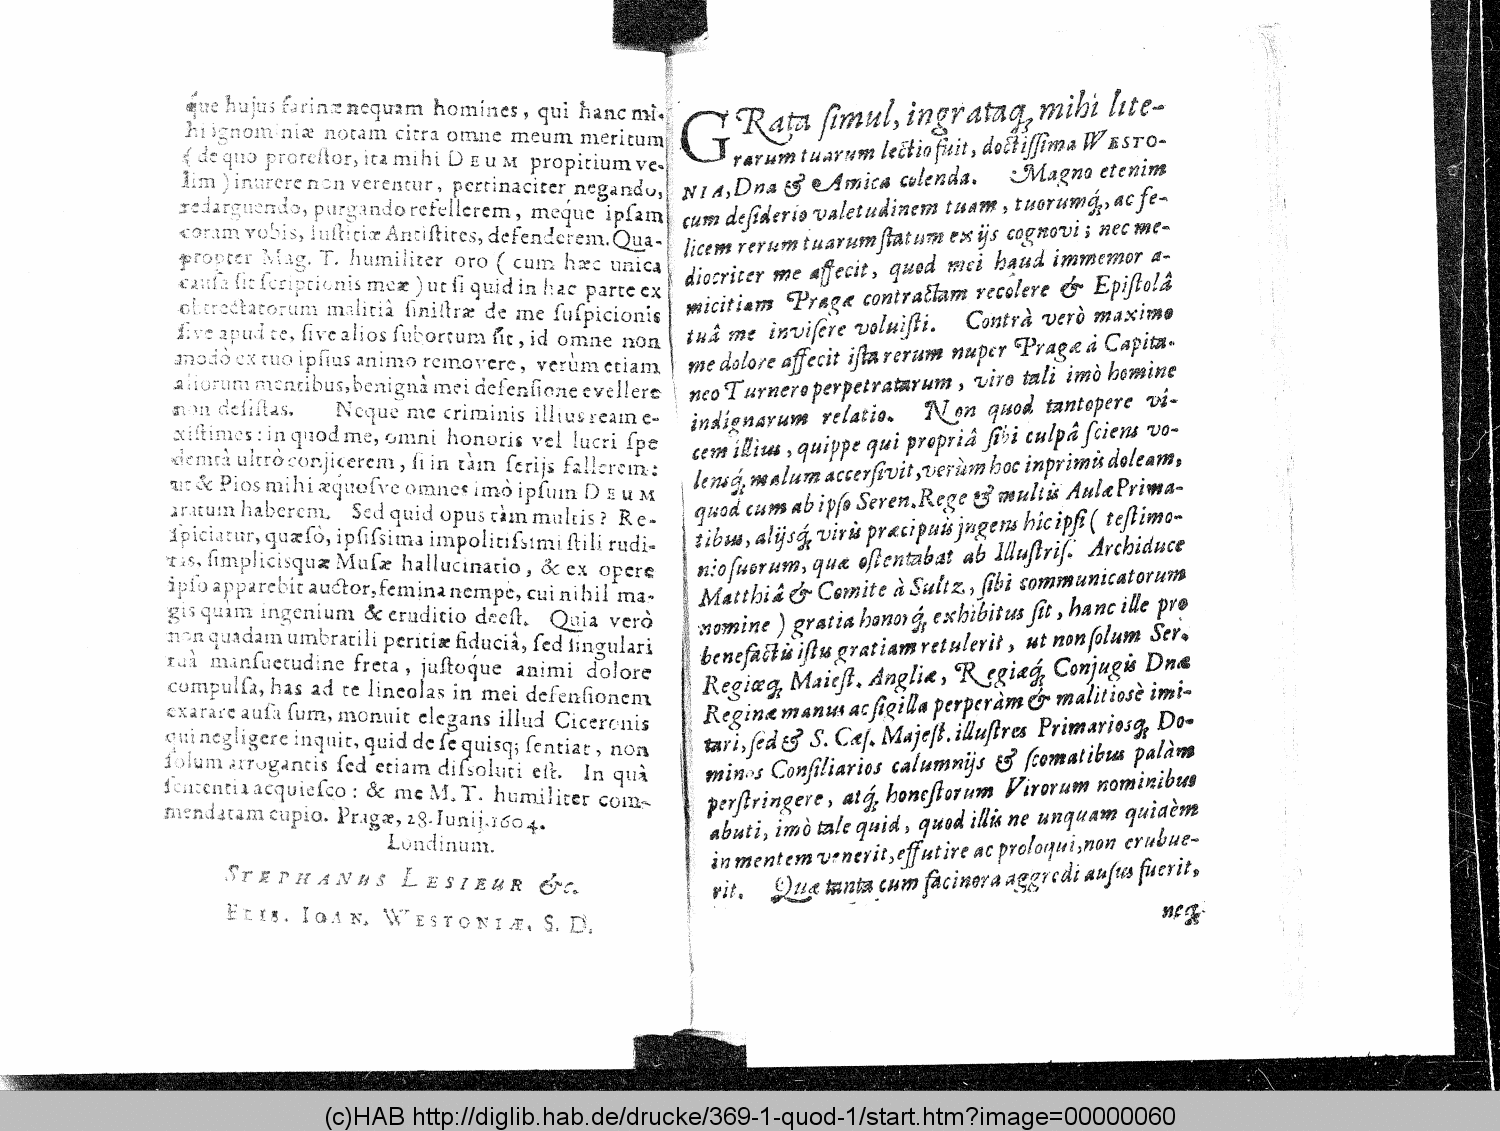 que hujus farinæ nequam homines, qui hanc mi-
hi ignominiæ notam citra omne meum meritum
( de quo protestor, ita mihi DEUM propitium ve-
lim ) inurere non verentur, pertinaciter negando,
redarguendo, purgando refellerem, meque ipsam
coram vobis, Iustitiæ Antistites, defenderem. Qua-
propter Mag. T. humiliter oro ( cum hæc unica
causa sit scriptionis meæ ) ut si quid in hac parte ex
obtrectatorum malitiâ sinistræ de me suspicionis
sive apud te, sive alios subortum sit, id omne non
modò ex tuo ipsius animo removere, verùm etiam
aliorum mentibus, benignâ mei defensione evellere
non desistas. Neque me criminis illius ream e-
xistimes: in quod me, omni honoris vel lucri spe
demtâ ultrò conjicerem, si in tàm serijs fallerem:
ut & Pios mihi æquosve omnes imò ipsum DEUM
iratum haberem. Sed quid opus tàm multis? Re-
spiciatur, quæsò, ipsissima impolitissimi stili rudi-
tas, simplicisquæ Musæ hallucinatio, & ex opere
ipso apparebit auctor, femina nempe, cui nihil ma-
gis quàm ingenium & eruditio deest. Quia verò
non quadam umbratili peritiæ fiduciâ, sed singulari
tuâ mansuetudine freta, justoque animi dolore
compulsa, has ad te lineolas in mei defensionem
exarare ausa sum, monuit elegans illud Ciceronis
qui negligere inquit, quid de se quisq; sentiat, non
solum arrogantis sed etiam dissoluti est. In quâ
sententia acquiesco: & me M. T. humiliter com-
mendatam cupio. Pragæ, 28. Iunij. 1604.
Londinum.
STEPHANUS LESIEUR &c.
ELIS. IOAN. WESTONIÆ, S. D.
GRata simul, ingrataq; mihi lite-
rarum tuarum lectio fuit, doctissima WESTO-
NIA, Dna & Amica colenda. Magno etenim
cum desiderio valetudinem tuam, tuorumq;, ac fe-
licem rerum tuarum statum ex ijs cognovi; nec me-
diocriter me affecit, quod mei haud immemor a-
micitiam Pragæ contractam recolere & Epistolâ
tuâ me invisere voluisti. Contrà verò maximo
me dolore affecit ista rerum nuper Pragæ à Capita-
neo Turnero perpetratarum, viro tali imò homine
indignarum relatio. Non quod tantopere vi-
cem illius, quippe qui propriâ sibi culpâ sciens vo-
lensq; malum accersivit, verùm hoc inprimis doleam,
quod cum ab ipso Seren. Rege & multis Aulæ Prima-
tibus, alijsq; viris præcipuis jngens hîc ipsi ( testimo-
nio suorum, quæ ostentabat ab Illustriss. Archiduce
Matthiâ & Comite à Sultz, sibi communicatorum
nomine ) gratia honorq; exhibitus sit, hanc ille pro
benefactis istis gratiam retulerit, ut non solum Ser.
Regiæq; Maiest. Angliæ, Regiæq; Conjugis Dnæ
Reginæ manus ac sigilla perperàm & malitiosè imi-
tari, sed & S. Cæs. Majest. illustres Primariosq; Do-
minos Consiliarios calumnijs & scomatibus palàm
perstringere, atq; honestorum Virorum nominibus
abuti, imò tale quid, quod illis ne unquam quidem
in mentem venerit, effutire ac proloqui, non erubue-
rit. Quæ tanta cum facinora aggredi ausus fuerit,
neq;
(c)HAB http://diglib.hab.de/drucke/369-1-quod-1/start.htm?image=00000060